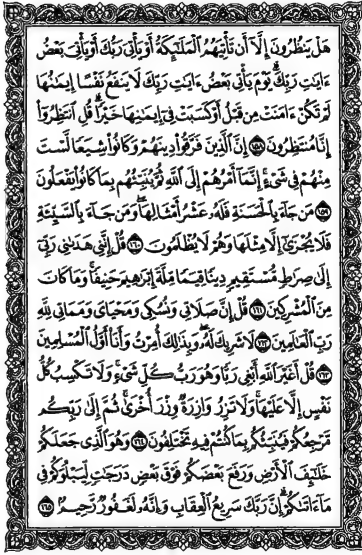 هَلْ يَنظُرُونَ إِلَّآ أَن تَأْتِيَهُمُ ٱلْمَلَٰٓئِكَةُ أَوْ يَأْتِىَ رَبُّكَ أَوْ يَأْتِىَ بَعْضُ
ءَايَٰتِ رَبِّكَ ۗ يَوْمَ يَأْتِى بَعْضُ ءَايَٰتِ رَبِّكَ لَا يَنفَعُ نَفْسًا إِيمَٰنُهَا
لَمْ تَكُنْ ءَامَنَتْ مِن قَبْلُ أَوْ كَسَبَتْ فِىٓ إِيمَٰنِهَا خَيْرًا ۗ قُلِ ٱنتَظِرُوٓا۟
إِنَّا مُنتَظِرُونَ ١٥٨ إِنَّ ٱلَّذِينَ فَرَّقُوا۟ دِينَهُمْ وَكَانُوا۟ شِيَعًا لَّسْتَ
مِنْهُمْ فِى شَىْءٍ ۚ إِنَّمَآ أَمْرُهُمْ إِلَى ٱللَّهِ ثُمَّ يُنَبِّئُهُم بِمَا كَانُوا۟ يَفْعَلُونَ
١٥٩ مَن جَآءَ بِٱلْحَسَنَةِ فَلَهُۥ عَشْرُ أَمْثَالِهَا ۖ وَمَن جَآءَ بِٱلسَّيِّئَةِ
فَلَا يُجْزَىٰٓ إِلَّا مِثْلَهَا وَهُمْ لَا يُظْلَمُونَ ١٦٠ قُلْ إِنَّنِى هَدَىٰنِى رَبِّىٓ
إِلَىٰ صِرَٰطٍ مُّسْتَقِيمٍ دِينًا قِيَمًا مِّلَّةَ إِبْرَٰهِيمَ حَنِيفًا ۚ وَمَا كَانَ
مِنَ ٱلْمُشْرِكِينَ ١٦١ قُلْ إِنَّ صَلَاتِى وَنُسُكِى وَمَحْيَاىَ وَمَمَاتِى لِلَّهِ
رَبِّ ٱلْعَٰلَمِينَ ١٦٢ لَا شَرِيكَ لَهُۥ ۖ وَبِذَٰلِكَ أُمِرْتُ وَأَنَا۠ أَوَّلُ ٱلْمُسْلِمِينَ
١٦٣ قُلْ أَغَيْرَ ٱللَّهِ أَبْغِى رَبًّا وَهُوَ رَبُّ كُلِّ شَىْءٍ ۚ وَلَا تَكْسِبُ كُلُّ
نَفْسٍ إِلَّا عَلَيْهَا ۚ وَلَا تَزِرُ وَازِرَةٌ وِزْرَ أُخْرَىٰ ۚ ثُمَّ إِلَىٰ رَبِّكُم
مَّرْجِعُكُمْ فَيُنَبِّئُكُم بِمَا كُنتُمْ فِيهِ تَخْتَلِفُونَ ١٦٤ وَهُوَ ٱلَّذِى جَعَلَكُمْ
خَلَٰٓئِفَ ٱلْأَرْضِ وَرَفَعَ بَعْضَكُمْ فَوْقَ بَعْضٍ دَرَجَٰتٍ لِّيَبْلُوَكُمْ فِى
مَآ ءَاتَىٰكُمْ ۗ إِنَّ رَبَّكَ سَرِيعُ ٱلْعِقَابِ وَإِنَّهُۥ لَغَفُورٌ رَّحِيمٌۢ ١٦٥